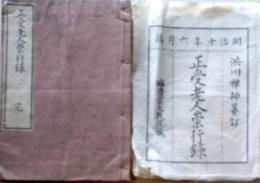 正受老人崇行録 完
明治十年六月鐫
洪川禅師纂訂
正受老人崇行録